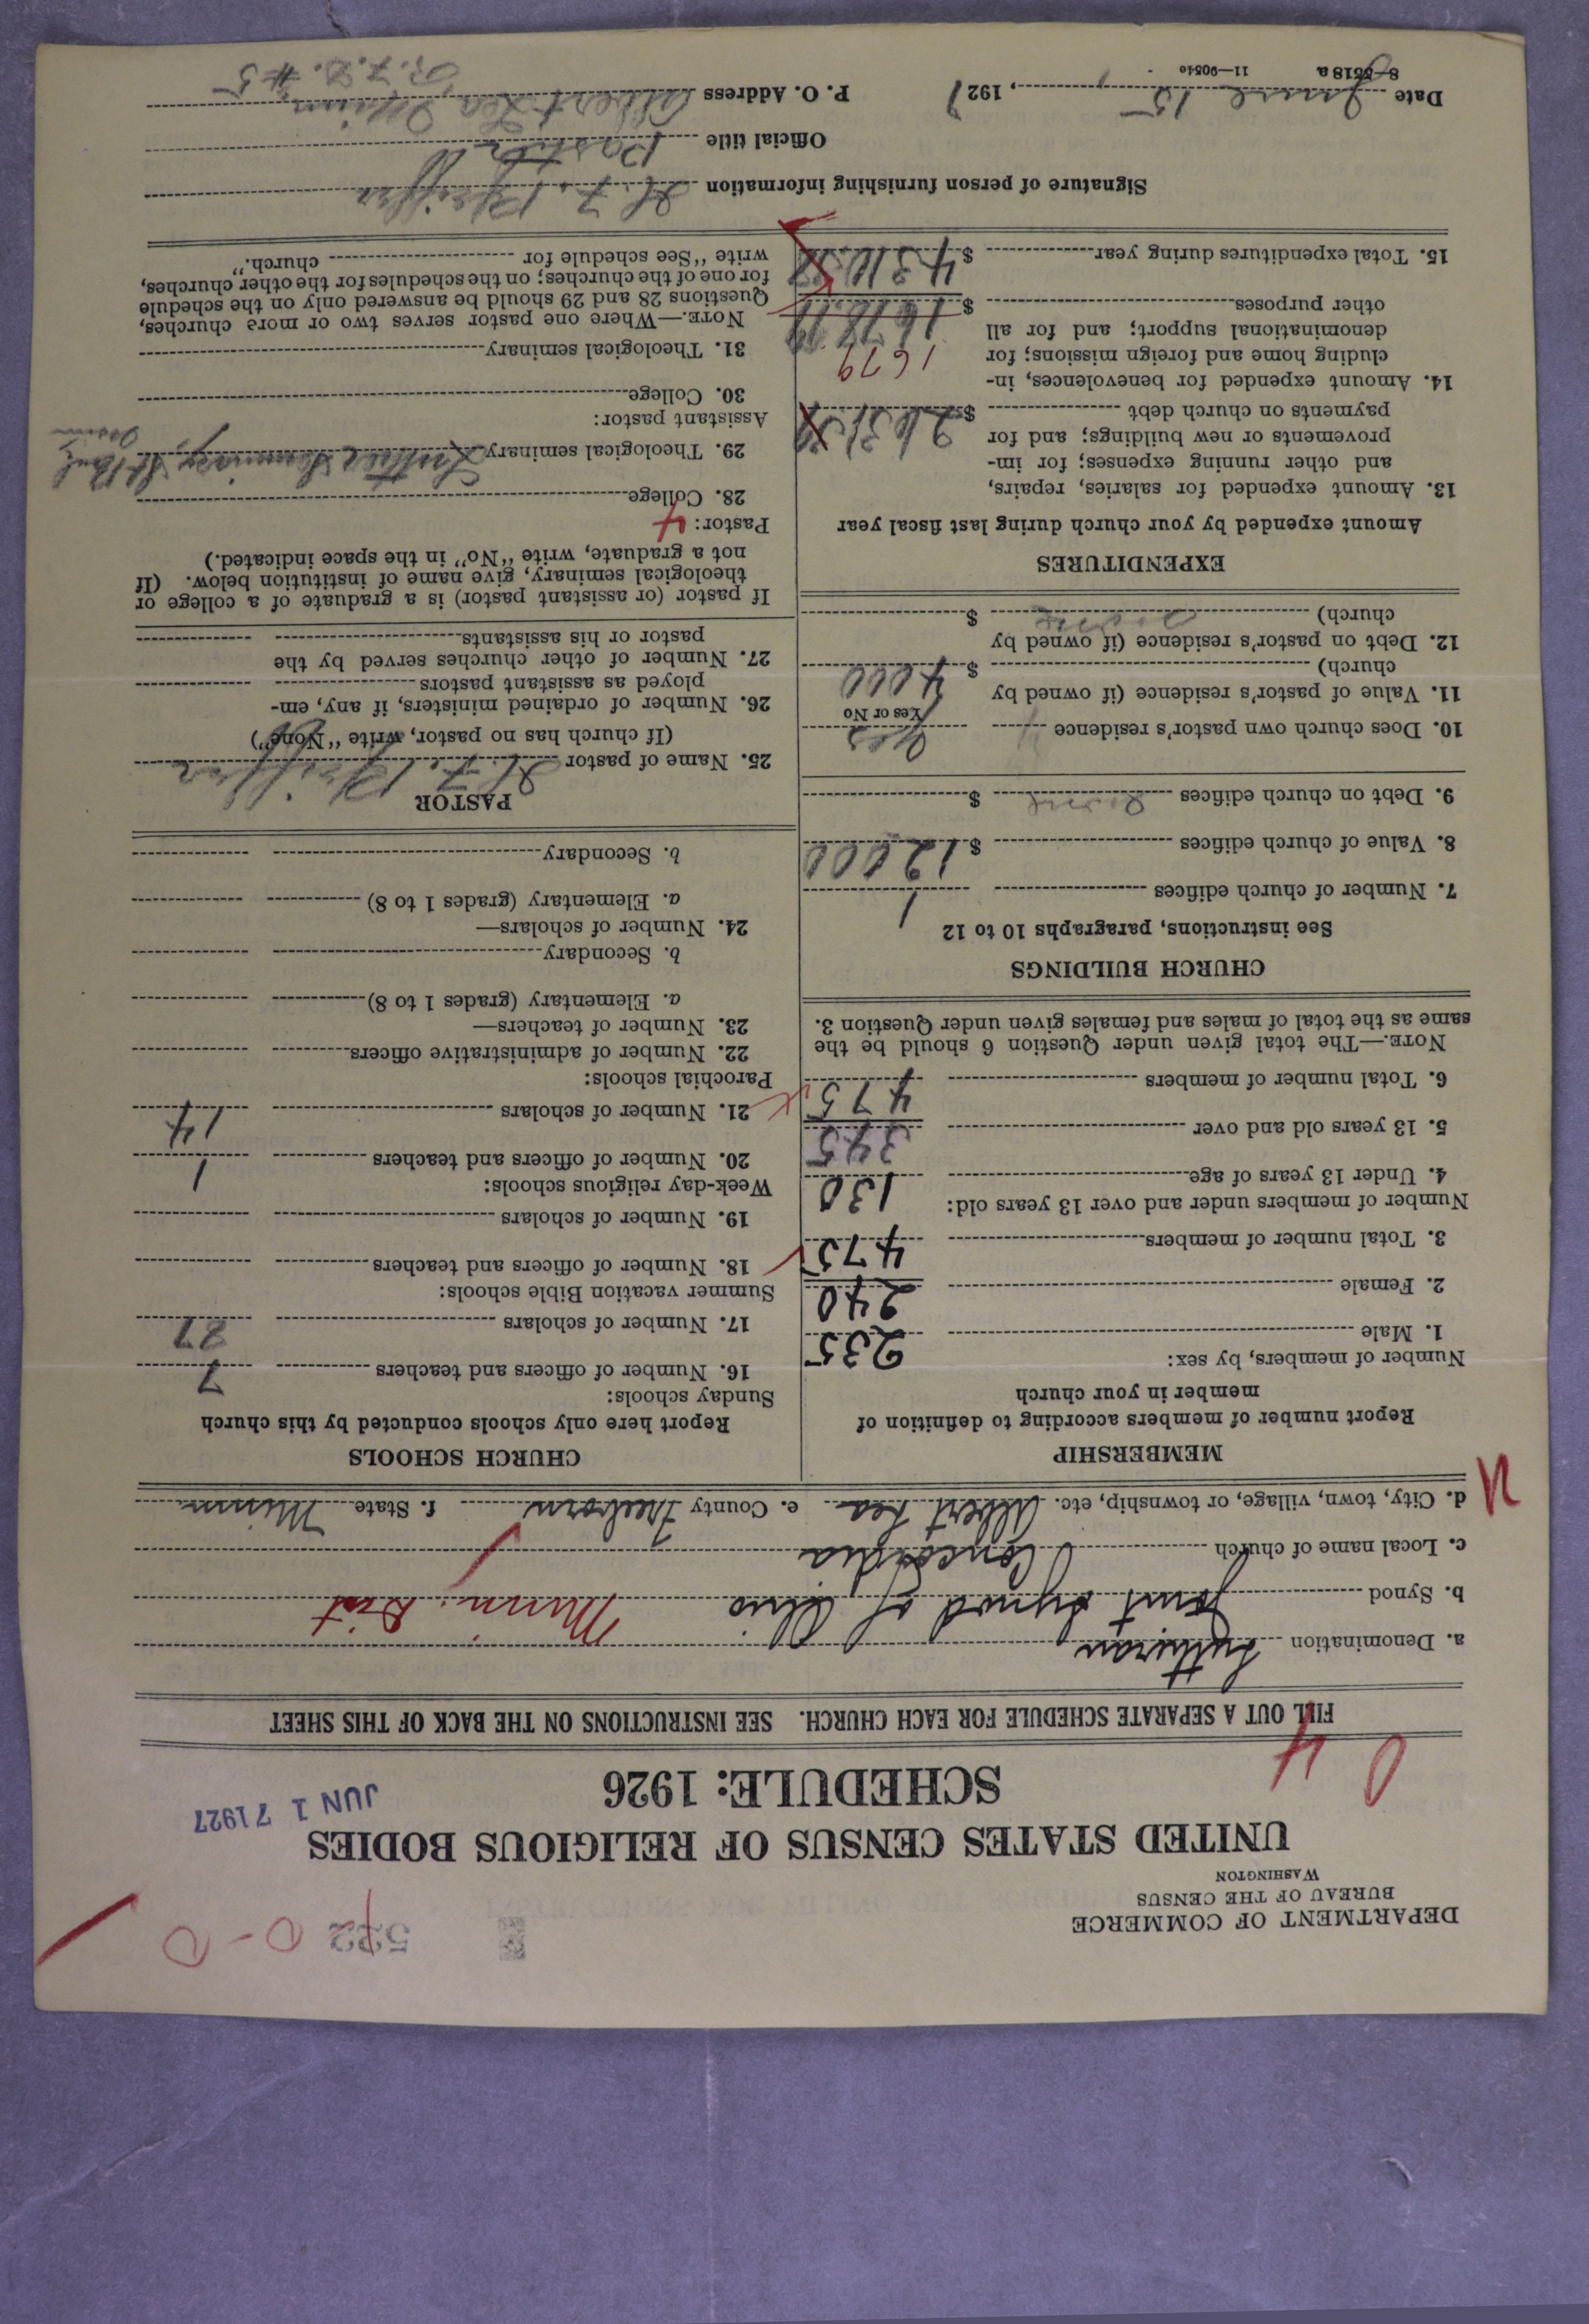 DEPARTMENT OF COMMERCE
BUREAU OF THE CENSUS
WASHINGTON
522 0-0
UNITED STATES CENSUS OF RELIGIOUS BODIES
SCHEDULE: 1926
JUN 17 1927
0 4
FILL OUT A SEPARATE SCHEDULE FOR EACH CHURCH. SEE INSTRUCTIONS ON THE BACK OF THIS SHEET
a. Denomination Lutheran
b. Synod Joint Synod of Ohio Minn. Dist
c. Local name of church Concordia
d. City, town, village, or township, etc. Albert Lea e. County Freeborn f. State Minn
MEMBERSHIP
Report number of members according to definition of
member in your church
Number of members, by sex:
1. Male 235
2. Female 240
3. Total number of members 475
Number of members under and over 13 years old:
4. Under 13 years of age 130
5. 13 years old and over 345
6. Total number of members 475
NOTE.—The total given under Question 6 should be the
same as the total of males and females given under Question 3.
CHURCH BUILDINGS
See instructions, paragraphs 10 to 12
7. Number of church edifices 1
8. Value of church edifices $ 12000
9. Debt on church edifices none $
10. Does church own pastor's residence Yes
Yes or No
11. Value of pastor's residence (if owned by
church) $ 4000
12. Debt on pastor's residence (if owned by
church) none $
EXPENDITURES
Amount expended by your church during last fiscal year
13. Amount expended for salaries, repairs,
and other running expenses; for im-
provements or new buildings; and for
payments on church debt $
14. Amount expended for benevolences, in-
cluding home and foreign missions; for 1679
denominational support; and for all
other purposes $
15. Total expenditures during year $
CHURCH SCHOOLS
Report here only schools conducted by this church
Sunday schools:
16. Number of officers and teachers 7
17. Number of scholars
Summer vacation Bible schools:
18. Number of officers and teachers
19. Number of scholars
Week-day religious schools:
20. Number of officers and teachers 1
21. Number of scholars 14
Parochial schools:
22. Number of administrative officers
23. Number of teachers—
a. Elementary (grades 1 to 8)
b. Secondary
24. Number of scholars—
a. Elementary (grades 1 to 8)
b. Secondary
PASTOR
25. Name of pastor H. F. Pfeiffer
(If church has no pastor, write "None")
26. Number of ordained ministers, if any, em-
ployed as assistant pastors
27. Number of other churches served by the
pastor or his assistants
If pastor (or assistant pastor) is a graduate of a college or
theological seminary, give name of institution below. (If
not a graduate, write "No" in the space indicated.)
Pastor: 4
28. College
29. Theological seminary Luther Seminary, St Paul
Assistant pastor:
30. College
31. Theological seminary
NOTE.—Where one pastor serves two or more churches,
Questions 28 and 29 should be answered only on the schedule
for one of the churches; on the schedules for the other churches,
write "See schedule for church."
Signature of person furnishing information H. F. Pfeiffer
Official title Pastor
Date June 15, 1927 P. O. Address Albert Lea, Minn.
8—5518a 11—9054c R. F. D. #5